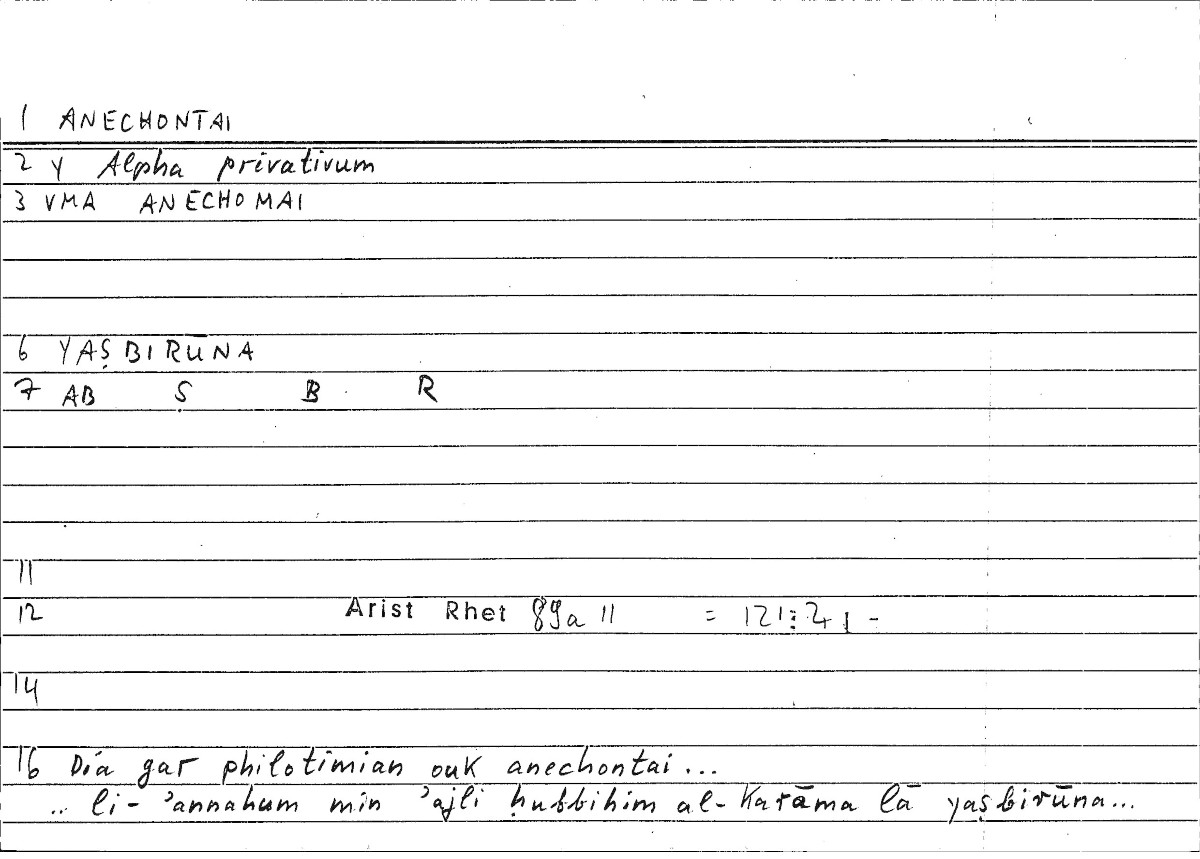 1 ANECHONTAI
2 Y Alpha privativum
3 VMA ANECHOMAI
6 YAṢBIRŪNA
7 AB S B R
11
12 Arist Rhet 89a 11 =
14
16 Día gar philotimian ouk anechontai...
.. li-ʾannahum min ʾajli ḥubbihim al-Karāma lā yaṣbirūna...